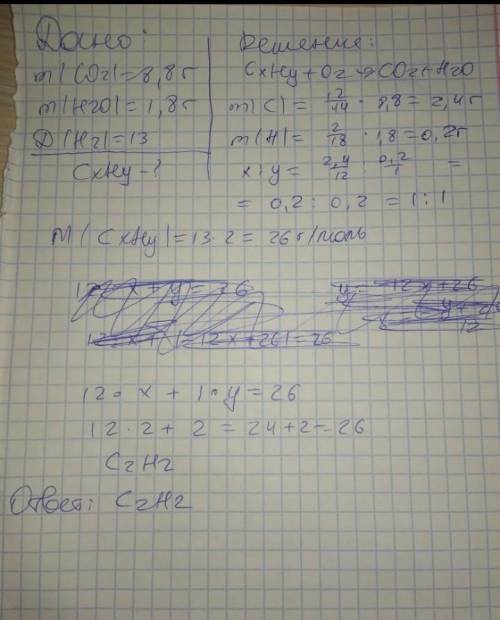 Дано:
m(CO2)=8,8г
m(H2O)=1,8г
D(H2)=13
CxHy-?
Решение:
CxHy+O2→CO2+H2O
m(C)=12/44·8,8=2,4г
m(H)=2/18·1,8=0,2г
x:y=2,4/12:0,2/1=
=0,2:0,2=1:1
M(CxHy)=13·2=26г/моль
12·x+1·y=26
12·2+2=24+2=26
C2H2
Ответ: C2H2